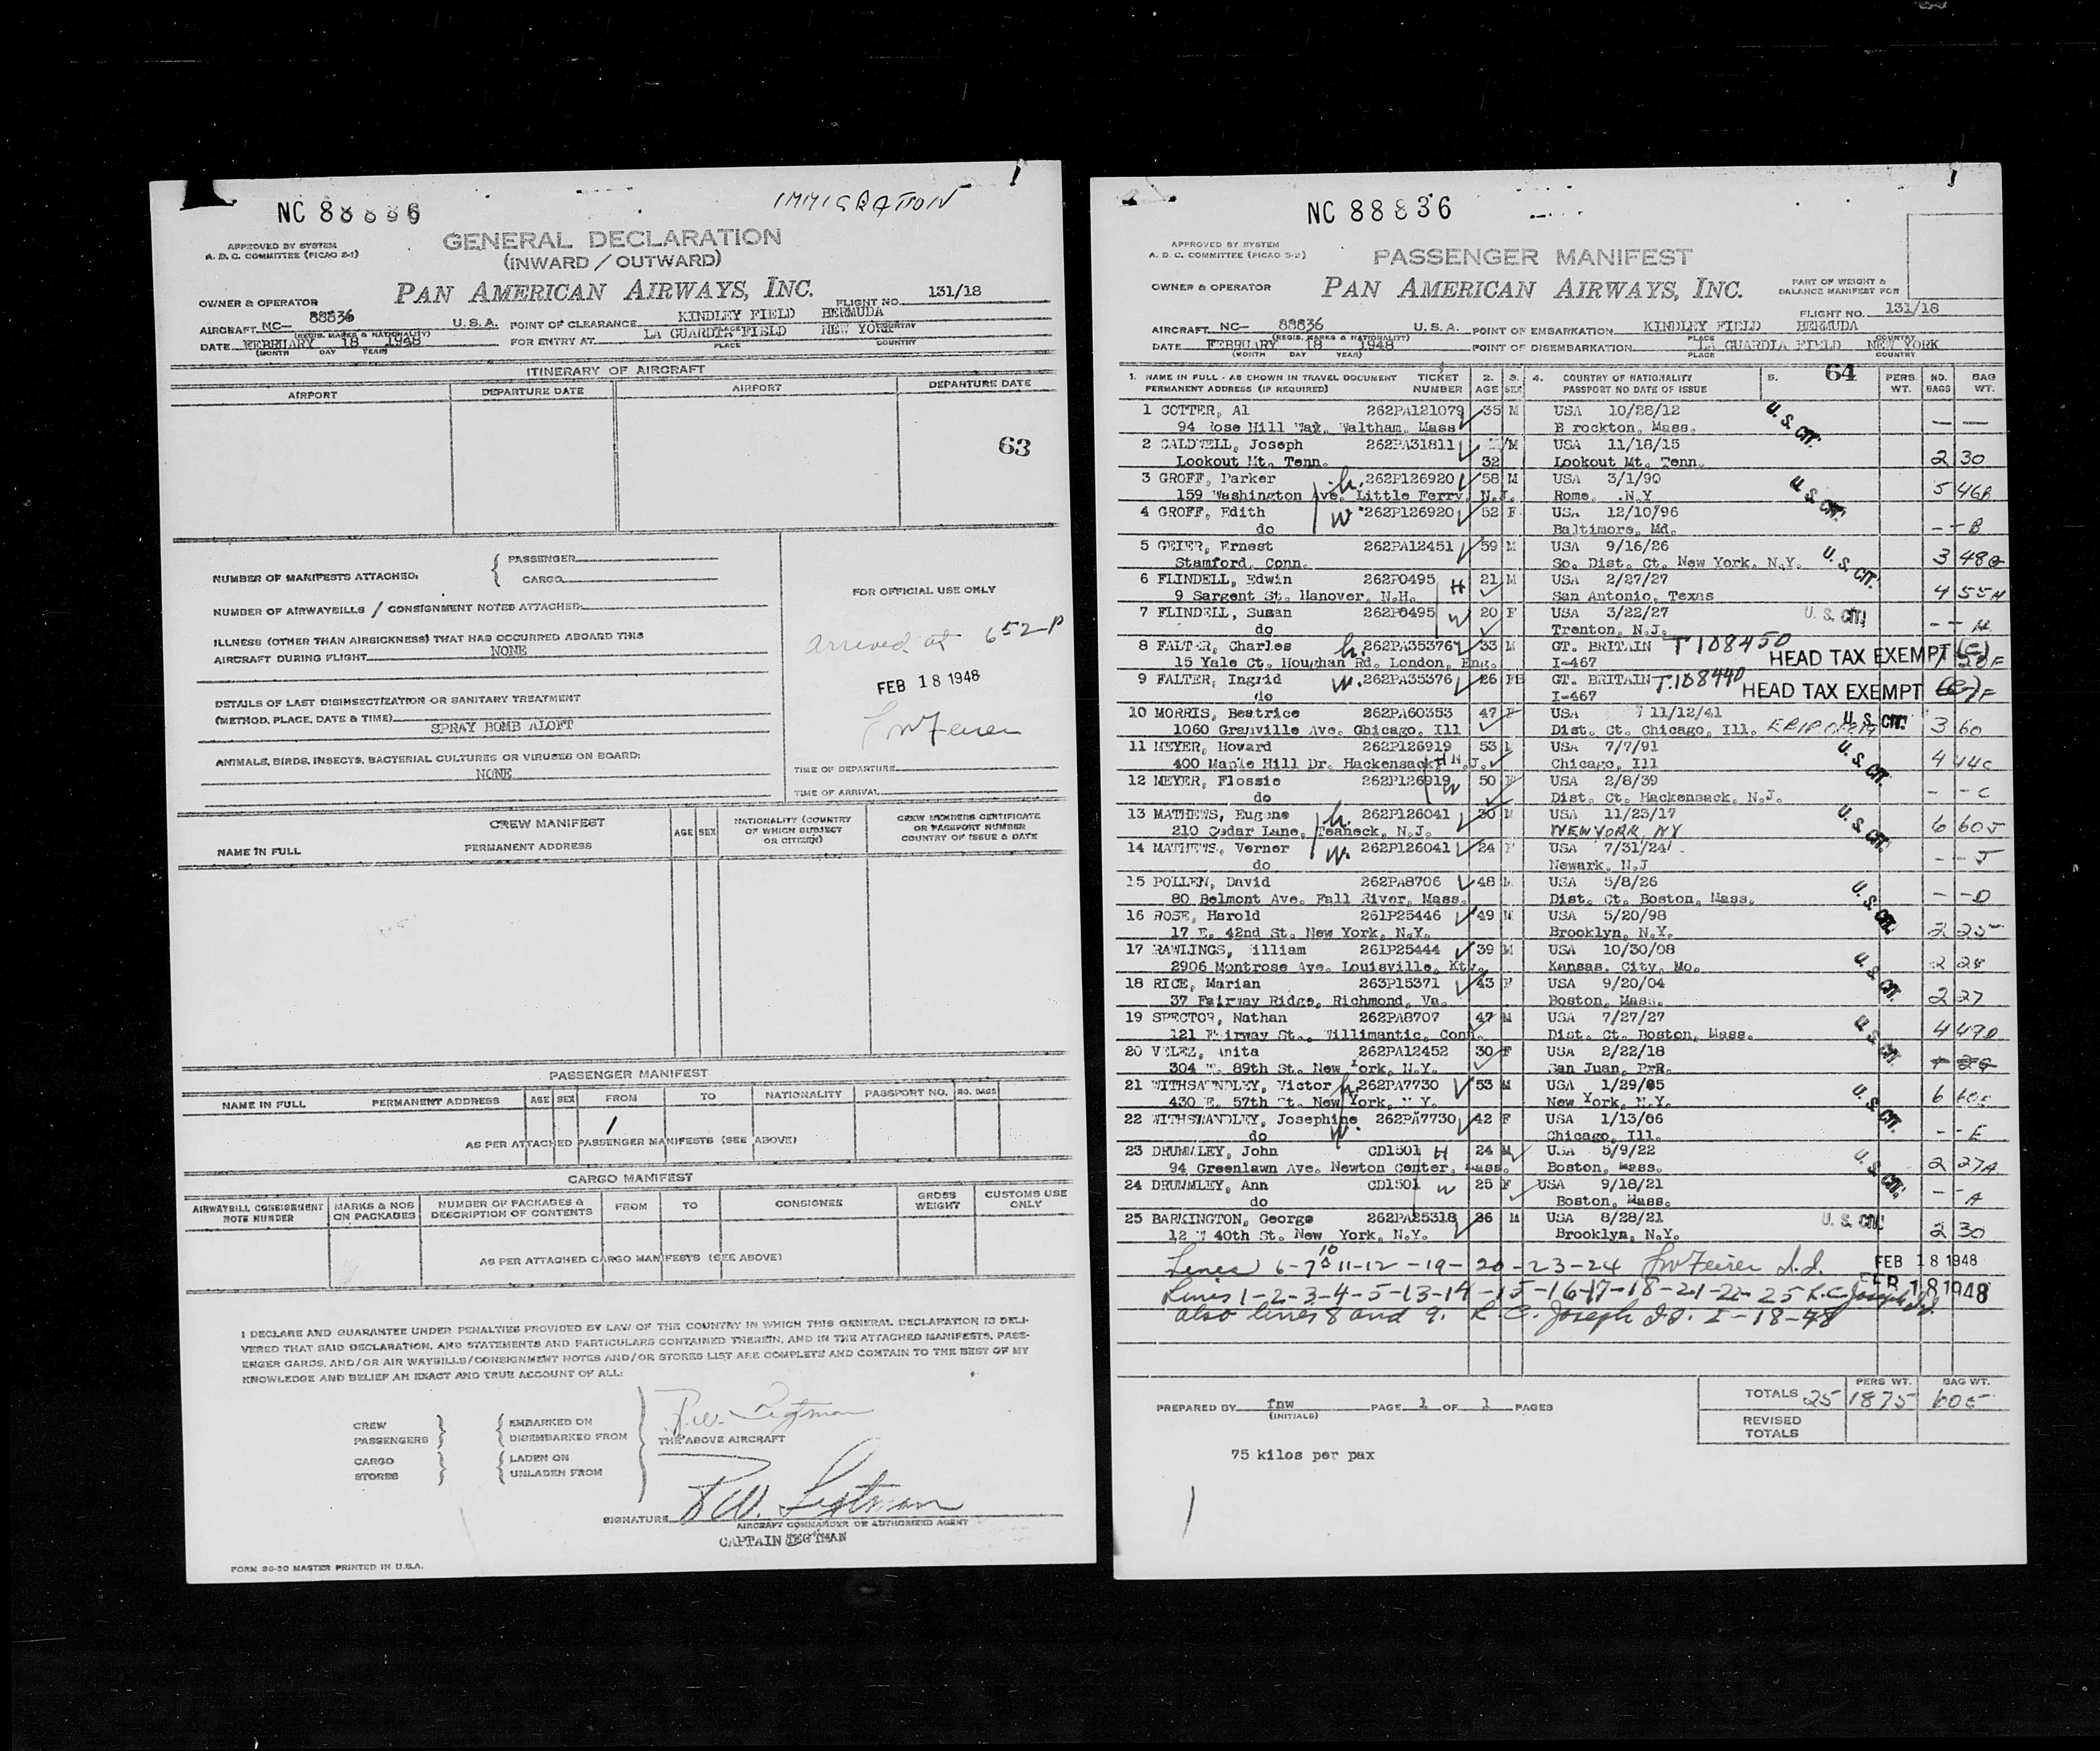 NC 88836
IMMIGRATION
APPROVED BY SYSTEM
A. D. C. COMMITTEE (PICAO 2-1)
GENERAL DECLARATION
(INWARD / OUTWARD)
OWNER & OPERATOR
PAN AMERICAN AIRWAYS, INC.
FLIGHT NO. 131/18
AIRCRAFT NC- 88836 U.S.A. POINT OF CLEARANCE KINDLEY FIELD BERMUDA
(REGIS. MARKS & NATIONALITY) PLACE COUNTRY
DATE FEBRUARY 18 1948 FOR ENTRY AT LA GUARDIA FIELD NEW YORK
(MONTH DAY YEAR) PLACE COUNTRY
ITINERARY OF AIRCRAFT
AIRPORT DEPARTURE DATE AIRPORT DEPARTURE DATE
63
NUMBER OF MANIFESTS ATTACHED: { PASSENGER
CARGO
NUMBER OF AIRWAYBILLS / CONSIGNMENT NOTES ATTACHED:
ILLNESS (OTHER THAN AIRSICKNESS) THAT HAS OCCURRED ABOARD THIS
AIRCRAFT DURING FLIGHT NONE
DETAILS OF LAST DISINSECTIZATION OR SANITARY TREATMENT
(METHOD, PLACE, DATE & TIME)
SPRAY BOMB ALOFT
ANIMALS, BIRDS, INSECTS, BACTERIAL CULTURES OR VIRUSES ON BOARD:
NONE
FOR OFFICIAL USE ONLY
Arrived at 652 P
FEB 18 1948
TIME OF DEPARTURE
TIME OF ARRIVAL
CREW MANIFEST
NAME IN FULL PERMANENT ADDRESS AGE SEX NATIONALITY (COUNTRY OF WHICH SUBJECT OR CITIZEN) CREW MEMBERS CERTIFICATE OR PASSPORT NUMBER COUNTRY OF ISSUE & DATE
PASSENGER MANIFEST
NAME IN FULL PERMANENT ADDRESS AGE SEX FROM TO NATIONALITY PASSPORT NO. NO. BAGS
1
AS PER ATTACHED PASSENGER MANIFESTS (SEE ABOVE)
CARGO MANIFEST
AIRWAYBILL CONSIGNMENT NOTE NUMBER MARKS & NOS ON PACKAGES NUMBER OF PACKAGES & DESCRIPTION OF CONTENTS FROM TO CONSIGNEE GROSS WEIGHT CUSTOMS USE ONLY
AS PER ATTACHED CARGO MANIFESTS (SEE ABOVE)
I DECLARE AND GUARANTEE UNDER PENALTIES PROVIDED BY LAW OF THE COUNTRY IN WHICH THIS GENERAL DECLARATION IS DELI-
VERED THAT SAID DECLARATION, AND STATEMENTS AND PARTICULARS CONTAINED THEREIN, AND IN THE ATTACHED MANIFESTS, PASS-
ENGER CARDS, AND/OR AIR WAYBILLS/CONSIGNMENT NOTES AND/OR STORES LIST ARE COMPLETE AND CONTAIN TO THE BEST OF MY
KNOWLEDGE AND BELIEF AN EXACT AND TRUE ACCOUNT OF ALL:
CREW
PASSENGERS
CARGO
STORES
EMBARKED ON
DISEMBARKED FROM
LADEN ON
UNLADEN FROM
THE ABOVE AIRCRAFT
SIGNATURE
AIRCRAFT COMMANDER OR AUTHORIZED AGENT
CAPTAIN TEGTMAN
FORM 36-50 MASTER PRINTED IN U.S.A.
NC 88836
APPROVED BY SYSTEM
A. D. C. COMMITTEE (PICAO 2-2)
PASSENGER MANIFEST
OWNER & OPERATOR
PAN AMERICAN AIRWAYS, INC.
PART OF WEIGHT &
BALANCE MANIFEST FOR
FLIGHT NO. 131/18
AIRCRAFT NC- 88836 U.S.A. POINT OF EMBARKATION KINDLEY FIELD BERMUDA
(REGIS. MARKS & NATIONALITY) PLACE COUNTRY
DATE FEBRUARY 18 1948 POINT OF DISEMBARKATION LA GUARDIA FIELD NEW YORK
(MONTH DAY YEAR) PLACE COUNTRY
64
1. NAME IN FULL - AS SHOWN IN TRAVEL DOCUMENT TICKET 2. 3. 4. COUNTRY OF NATIONALITY 5. PERS. NO. BAG
PERMANENT ADDRESS (IF REQUIRED) NUMBER AGE SEX PASSPORT NO DATE OF ISSUE WT. BAGS WT.
1 COTTER, Al 262PA121079 35 M USA 10/28/12 U. S. CIT.
94 Rose Hill Way, Waltham, Mass B rockton, Mass. — —
2 CALDWELL, Joseph 262PA31811 M USA 11/18/15
Lookout Mt. Tenn. 32 Lookout Mt. Tenn. 2 30
3 GROFF, Parker h. 262P126920 58 M USA 3/1/90 U. S. CIT.
159 Washington Ave. Little Ferry, N.J. Rome, N.Y 5 46B
4 GROFF, Edith W 262P126920 52 F USA 12/10/96
do Baltimore, Md. - - B
5 GEIER, Ernest 262PA12451 59 M USA 9/16/26 U. S. CIT.
Stamford, Conn. So. Dist. Ct. New York, N.Y. 3 48G
6 FLINDELL, Edwin 262P0495 H 21 M USA 2/27/27
9 Sargent St. Hanover, N.H. San Antonio, Texas 4 55H
7 FLINDELL, Susan 262P0495 W 20 F USA 3/22/27 U. S. CIT.
do Trenton, N.J. - - H
8 FALTER, Charles h. 262PA35376 33 M GT. BRITAIN T 108450
15 Yale Ct. Houghan Rd. London, Eng. I-467 HEAD TAX EXEMPT (c)
9 FALTER, Ingrid W. 262PA35376 26 F GT. BRITAIN T.108440
do I-467 HEAD TAX EXEMPT
10 MORRIS, Beatrice 262PA60353 47 F USA 11/12/41 U. S. CIT.
1060 Granville Ave. Chicago, Ill Dist. Ct. Chicago, Ill. 3 60
11 MEYER, Howard 262P126919 53 M USA 7/7/91 U. S. CIT.
400 Maple Hill Dr. Hackensack, N.J. H Chicago, Ill 4 44C
12 MEYER, Flossie 262P126919 W 50 F USA 2/8/39
do Dist. Ct. Hackensack, N.J. - - C
13 MATHEWS, Eugene h. 262P126041 30 M USA 11/23/17 U. S. CIT.
210 Cedar Lane, Teaneck, N.J. NEW YORK, NY 6 60J
14 MATHEWS, Verner W. 262P126041 24 F USA 7/31/24
do Newark, N.J - - J
15 POLLEN, David 262PA8706 48 M USA 5/8/26 U. S. CIT.
80 Belmont Ave. Fall River, Mass. Dist. Ct. Boston, Mass. - - D
16 ROSE, Harold 261P25446 49 M USA 5/20/98
17 E. 42nd St. New York, N.Y. Brooklyn, N.Y. 2 25
17 RAWLINGS, William 261P25444 39 M USA 10/30/08 U. S. CIT.
2906 Montrose Ave. Louisville, Kty. Kansas. City, Mo. 2
18 RICE, Marian 263P15371 43 F USA 9/20/04
37 Fairway Ridge, Richmond, Va. Boston, Mass. 2 27
19 SPECTOR, Nathan 262PA8707 47 M USA 7/27/27 U. S. CIT.
121 Fairway St., Willimantic, Conn. Dist. Ct. Boston, Mass. 4 49D
20 VELEZ, Anita 262PA12452 30 F USA 2/22/18
304 W. 89th St. New York, N.Y. San Juan, P.R.
21 WITHSTANDLEY, Victor h 262PA7730 53 M USA 1/29/95 U. S. CIT.
430 E. 57th St. New York, N.Y. New York, N.Y. 6 60E
22 WITHSTANDLEY, Josephine W. 262PA7730 42 F USA 1/13/06
do Chicago, Ill. - - E
23 DRUMMLEY, John CD1501 H 24 M USA 5/9/22 U. S. CIT.
94 Greenlawn Ave. Newton Center, Mass. Boston, Mass. 2 27A
24 DRUMMLEY, Ann CD1501 W 25 F USA 9/18/21
do Boston, Mass. - - A
25 BARKINGTON, George 262PA25318 26 M USA 8/28/21 U. S. CIT.
12 W 40th St. New York, N.Y. Brooklyn, N.Y. 2 30
Lines 6-7-10-11-12-19-20-23-24 FEB 18 1948
Lines 1-2-3-4-5-13-14-15-16-17-18-21-22-25 R.C. Joseph FEB 18 1948
also lines 8 and 9. R.C. Joseph I.I. 2-18-48
PREPARED BY fnw PAGE 1 OF 1 PAGES
(INITIALS)
PERS WT. BAG WT.
TOTALS 25 1875 605
REVISED
TOTALS
75 kilos per pax